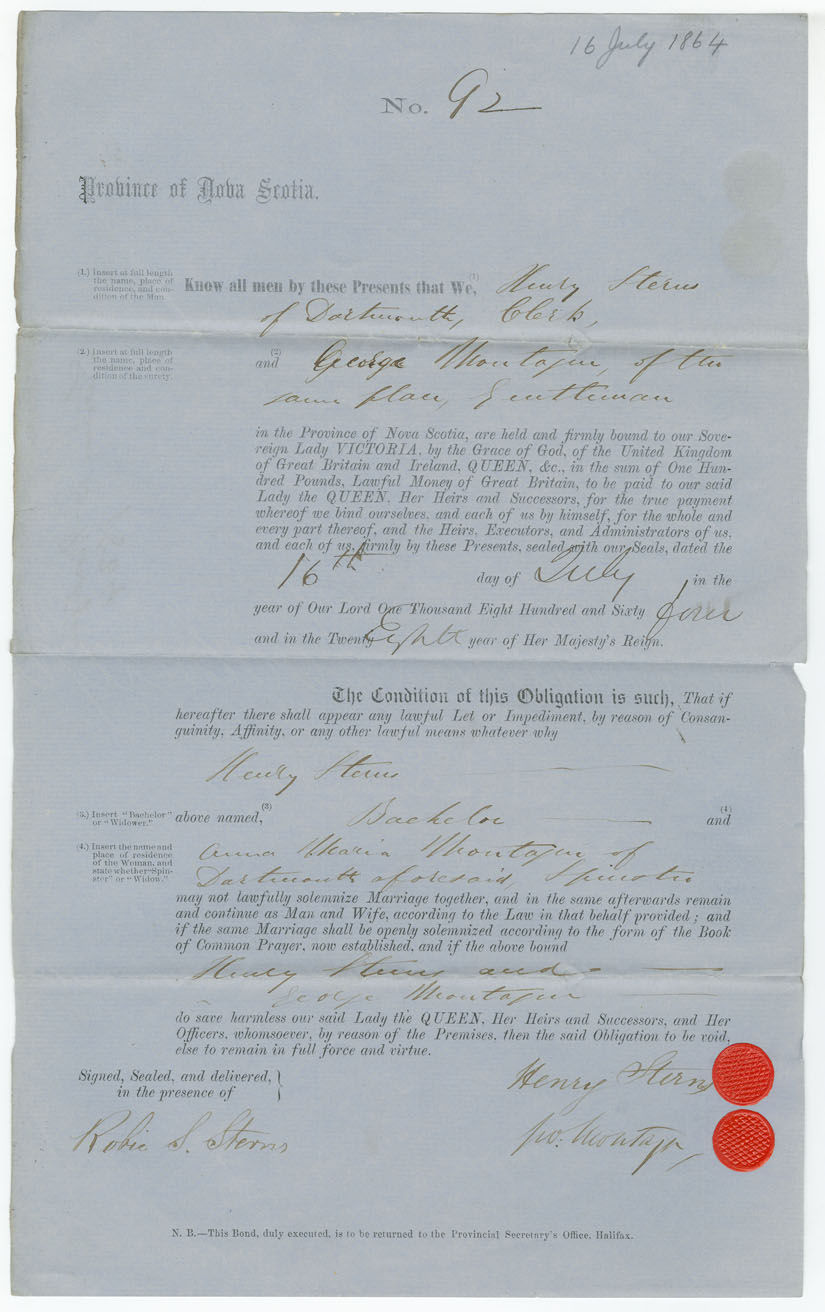 16 July 1864
No. 92
Province of Nova Scotia.
(1.) Insert at full length
the name, place of
residence, and con-
dition of the Man.
Know all men by these Presents that We, (1) Henry Sterns
of Dartmouth, Clerk,
(2.) Insert at full length
the name, place of
residence and con-
dition of the surety.
and (2) George Montagu, of the
same place, Gentleman
in the Province of Nova Scotia, are held and firmly bound to our Sove-
reign Lady VICTORIA, by the Grace of God, of the United Kingdom
of Great Britain and Ireland, QUEEN, &c., in the sum of One Hun-
dred Pounds, Lawful Money of Great Britain, to be paid to our said
Lady the QUEEN, Her Heirs and Successors, for the true payment
whereof we bind ourselves, and each of us by himself, for the whole and
every part thereof, and the Heirs, Executors, and Administrators of us,
and each of us, firmly by these Presents, sealed with our Seals, dated the
16th day of July in the
year of Our Lord One Thousand Eight Hundred and Sixty four
and in the Twenty Eighth year of Her Majesty's Reign.
The Condition of this Obligation is such, That if
hereafter there shall appear any lawful Let or Impediment, by reason of Consan-
guinity, Affinity, or any other lawful means whatever why
Henry Sterns
(3.) Insert "Bachelor"
or "Widower."
above named, (3) Bachelor and (4)
(4.) Insert the name and
place of residence
of the Woman, and
state whether "Spin-
ster" or "Widow."
Anna Maria Montagu of
Dartmouth aforesaid, Spinster
may not lawfully solemnize Marriage together, and in the same afterwards remain
and continue as Man and Wife, according to the Law in that behalf provided; and
if the same Marriage shall be openly solemnized according to the form of the Book
of Common Prayer, now established, and if the above bound
Henry Sterns and
George Montagu
do save harmless our said Lady the QUEEN, Her Heirs and Successors, and Her
Officers, whomsoever, by reason of the Premises, then the said Obligation to be void,
else to remain in full force and virtue.
Signed, Sealed, and delivered,
in the presence of
Henry Sterns
Robie S. Sterns
Montagu
N. B.—This Bond, duly executed, is to be returned to the Provincial Secretary's Office, Halifax.